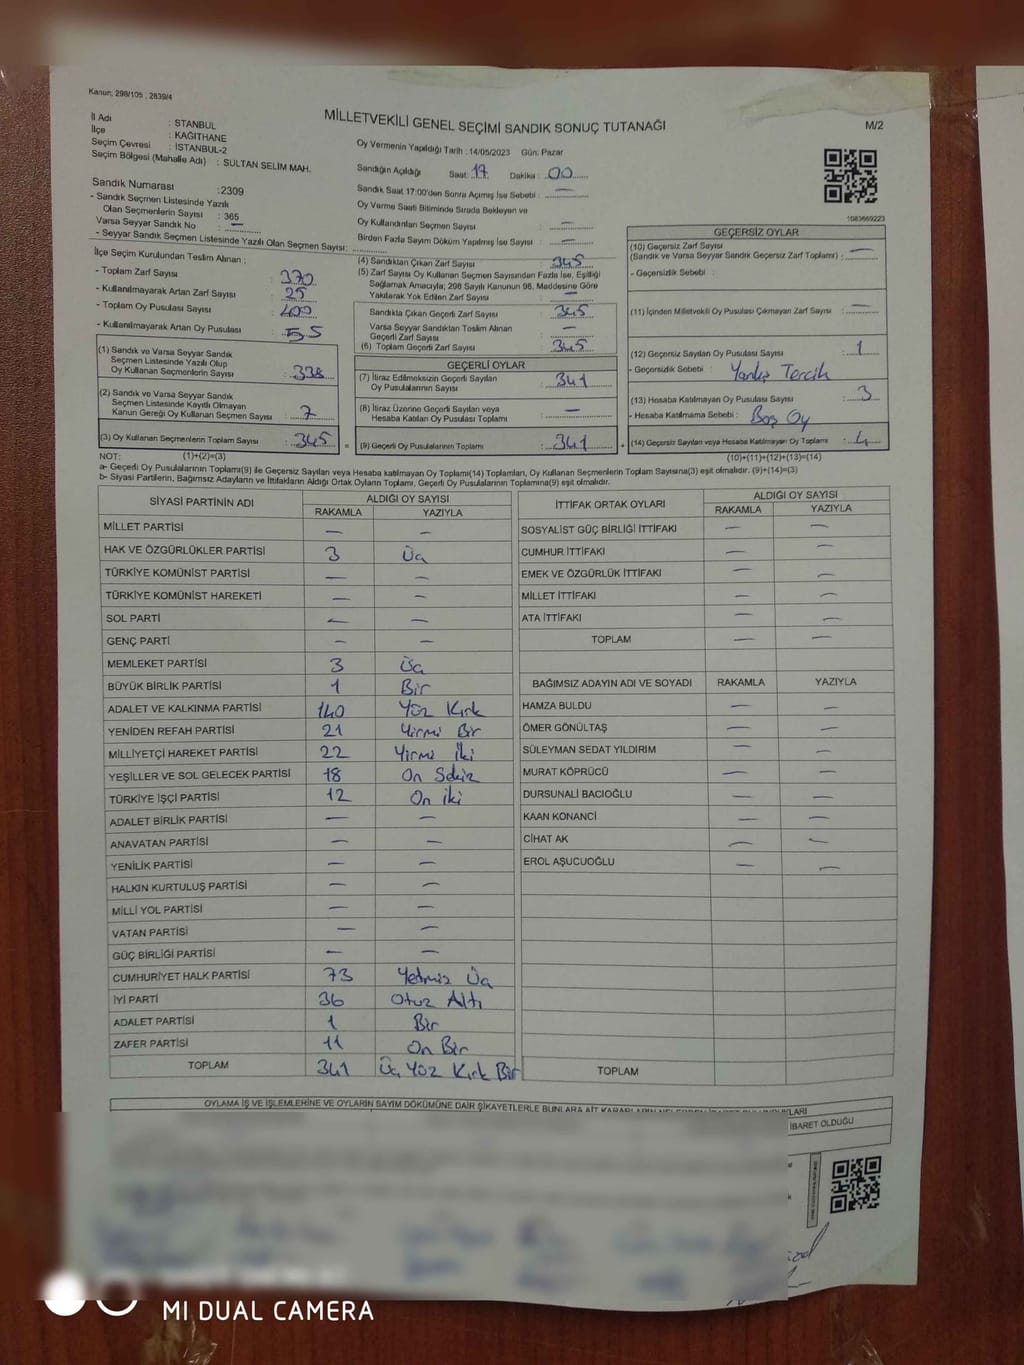 Kanun: 298/105 , 2839/4
MİLLETVEKİLİ GENEL SEÇİMİ SANDIK SONUÇ TUTANAĞI
M/2
İl Adı : STANBUL
İlçe : KAĞITHANE
Seçim Çevresi : İSTANBUL-2
Seçim Bölgesi (Mahalle Adı) : SULTAN SELİM MAH.
Sandık Numarası : 2309
- Sandık Seçmen Listesinde Yazılı
Olan Seçmenlerin Sayısı : 365
Varsa Seyyar Sandık No : —
- Seyyar Sandık Seçmen Listesinde Yazılı Olan Seçmen Sayısı:
İlçe Seçim Kurulundan Teslim Alınan ;
- Toplam Zarf Sayısı : 370
- Kullanılmayarak Artan Zarf Sayısı : 25
- Toplam Oy Pusulası Sayısı : 400
- Kullanılmayarak Artan Oy Pusulası : 55
(1) Sandık ve Varsa Seyyar Sandık
Seçmen Listesinde Yazılı Olup
Oy Kullanan Seçmenlerin Sayısı : 338
(2) Sandık ve Varsa Seyyar Sandık
Seçmen Listesinde Kayıtlı Olmayan
Kanun Gereği Oy Kullanan Seçmen Sayısı : 7
(3) Oy Kullanan Seçmenlerin Toplam Sayısı : 345
Oy Vermenin Yapıldığı Tarih : 14/05/2023 Gün: Pazar
Sandığın Açıldığı Saat: 17 Dakika : 00
Sandık Saat 17:00'den Sonra Açılmış İse Sebebi : —
Oy Verme Saati Bitiminde Sırada Bekleyen ve
Oy Kullandırılan Seçmen Sayısı : —
Birden Fazla Sayım Döküm Yapılmış İse Sayısı : —
(4) Sandıktan Çıkan Zarf Sayısı : 345
(5) Zarf Sayısı Oy Kullanan Seçmen Sayısından Fazla İse, Eşitliği
Sağlamak Amacıyla; 298 Sayılı Kanunun 98. Maddesine Göre
Yakılarak Yok Edilen Zarf Sayısı : —
Sandıkla Çıkan Geçerli Zarf Sayısı : 345
Varsa Seyyar Sandıktan Teslim Alınan
Geçerli Zarf Sayısı : —
(6) Toplam Geçerli Zarf Sayısı : 345
GEÇERLİ OYLAR
(7) İtiraz Edilmeksizin Geçerli Sayılan
Oy Pusulalarının Sayısı : 341
(8) İtiraz Üzerine Geçerli Sayılan veya
Hesaba Katılan Oy Pusulası Toplamı : —
= (9) Geçerli Oy Pusulalarının Toplamı : 341
1083669223
GEÇERSİZ OYLAR
(10) Geçersiz Zarf Sayısı
(Sandık ve Varsa Seyyar Sandık Geçersiz Zarf Toplamı) : —
- Geçersizlik Sebebi :
(11) İçinden Milletvekili Oy Pusulası Çıkmayan Zarf Sayısı : —
(12) Geçersiz Sayılan Oy Pusulası Sayısı : 1
- Geçersizlik Sebebi : Yanlış Tercih
(13) Hesaba Katılmayan Oy Pusulası Sayısı : 3
- Hesaba Katılmama Sebebi : Boş Oy
+ (14) Geçersiz Sayılan veya Hesaba Katılmayan Oy Toplamı : 4
NOT: (1)+(2)=(3) (10)+(11)+(12)+(13)=(14)
a- Geçerli Oy Pusulalarının Toplamı(9) ile Geçersiz Sayılan veya Hesaba katılmayan Oy Toplamı(14) Toplamları, Oy Kullanan Seçmenlerin Toplam Sayısına(3) eşit olmalıdır. (9)+(14)=(3)
b- Siyasi Partilerin, Bağımsız Adayların ve İttifakların Aldığı Ortak Oyların Toplamı, Geçerli Oy Pusulalarının Toplamına(9) eşit olmalıdır.
SİYASİ PARTİNİN ADI ALDIĞI OY SAYISI
RAKAMLA YAZIYLA
MİLLET PARTİSİ — —
HAK VE ÖZGÜRLÜKLER PARTİSİ 3 Üç
TÜRKİYE KOMÜNİST PARTİSİ — —
TÜRKİYE KOMÜNİST HAREKETİ — —
SOL PARTİ — —
GENÇ PARTİ — —
MEMLEKET PARTİSİ 3 Üç
BÜYÜK BİRLİK PARTİSİ 1 Bir
ADALET VE KALKINMA PARTİSİ 140 Yüz Kırk
YENİDEN REFAH PARTİSİ 21 Yirmi Bir
MİLLİYETÇİ HAREKET PARTİSİ 22 Yirmi İki
YEŞİLLER VE SOL GELECEK PARTİSİ 18 On Sekiz
TÜRKİYE İŞÇİ PARTİSİ 12 On iki
ADALET BİRLİK PARTİSİ — —
ANAVATAN PARTİSİ — —
YENİLİK PARTİSİ — —
HALKIN KURTULUŞ PARTİSİ — —
MİLLİ YOL PARTİSİ — —
VATAN PARTİSİ — —
GÜÇ BİRLİĞİ PARTİSİ — —
CUMHURİYET HALK PARTİSİ 73 Yetmiş Üç
İYİ PARTİ 36 Otuz Altı
ADALET PARTİSİ 1 Bir
ZAFER PARTİSİ 11 On Bir
TOPLAM 341 Üç Yüz Kırk Bir
İTTİFAK ORTAK OYLARI ALDIĞI OY SAYISI
RAKAMLA YAZIYLA
SOSYALİST GÜÇ BİRLİĞİ İTTİFAKI — —
CUMHUR İTTİFAKI — —
EMEK VE ÖZGÜRLÜK İTTİFAKI — —
MİLLET İTTİFAKI — —
ATA İTTİFAKI — —
TOPLAM — —
BAĞIMSIZ ADAYIN ADI VE SOYADI RAKAMLA YAZIYLA
HAMZA BULDU — —
ÖMER GÖNÜLTAŞ — —
SÜLEYMAN SEDAT YILDIRIM — —
MURAT KÖPRÜCÜ — —
DURSUNALİ BACIOĞLU — —
KAAN KONANCİ — —
CİHAT AK — —
EROL AŞUCUOĞLU — —
TOPLAM
OYLAMA İŞ VE İŞLEMLERİNE VE OYLARIN SAYIM DÖKÜMÜNE DAİR ŞİKAYETLERLE BUNLARA AİT
İBARET OLDUĞU
MI DUAL CAMERA